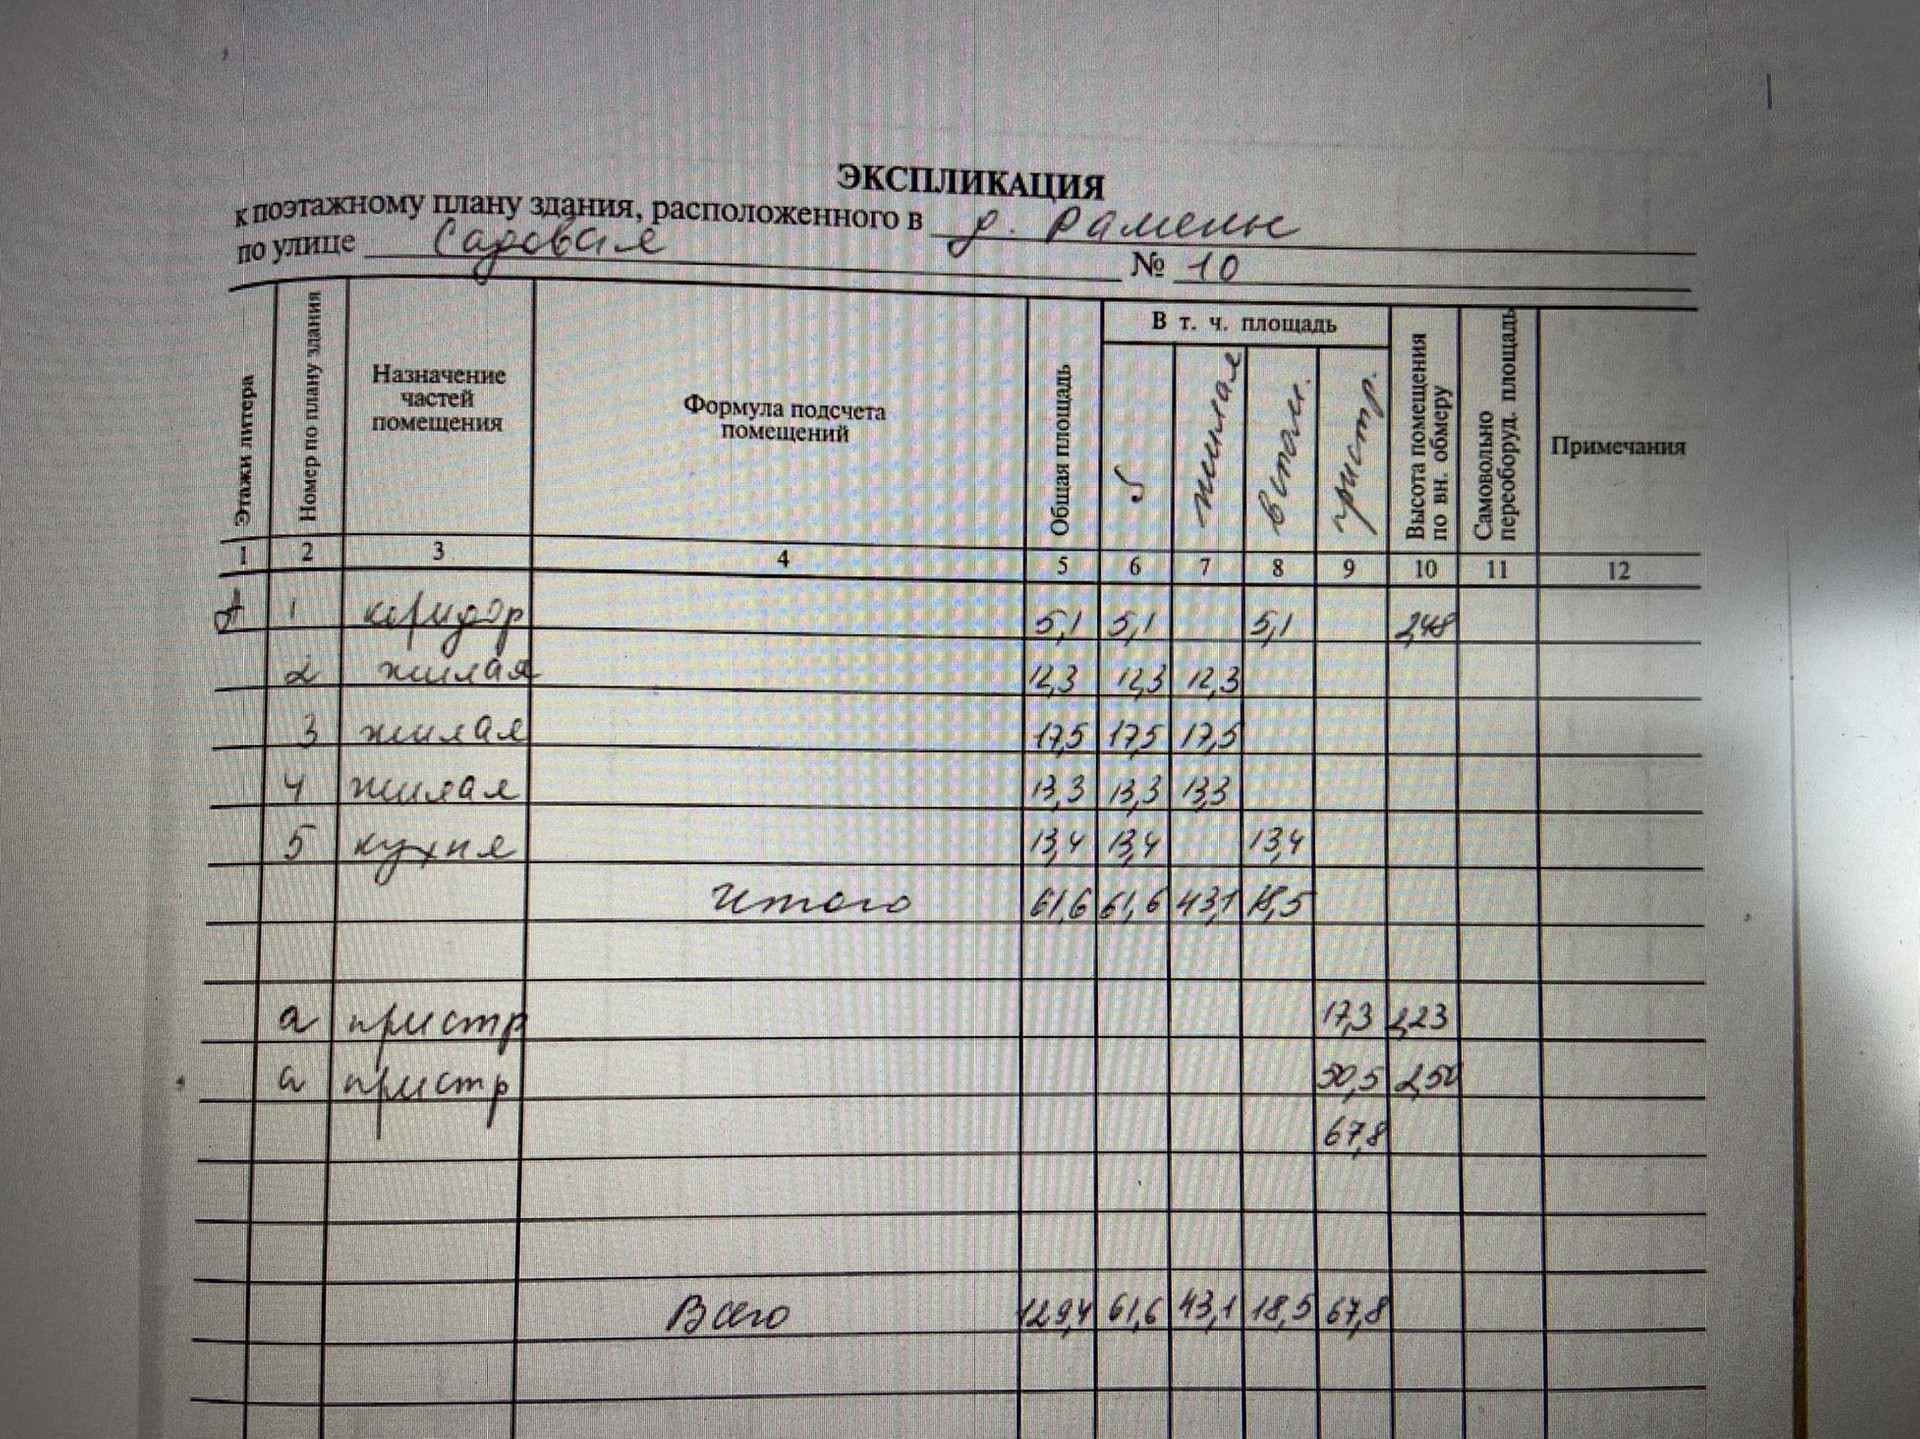 ЭКСПЛИКАЦИЯ
к поэтажному плану здания, расположенного в д. Рамены
по улице Садовая № 10
Этажи литера Номер по плану здания Назначение частей помещения Формула подсчета помещений Общая площадь В т. ч. площадь Высота помещения по вн. обмеру Самовольно переоборуд. площадь Примечания
жилая вспом. пристр.
1 2 3 4 5 6 7 8 9 10 11 12
А 1 коридор 5,1 5,1 5,1 2,48
2 жилая 12,3 12,3 12,3
3 жилая 17,5 17,5 17,5
4 жилая 13,3 13,3 13,3
5 кухня 13,4 13,4 13,4
Итого 61,6 61,6 43,1 18,5
а пристр 17,3 2,23
а пристр 50,5 2,50
67,8
Всего 129,4 61,6 43,1 18,5 67,8